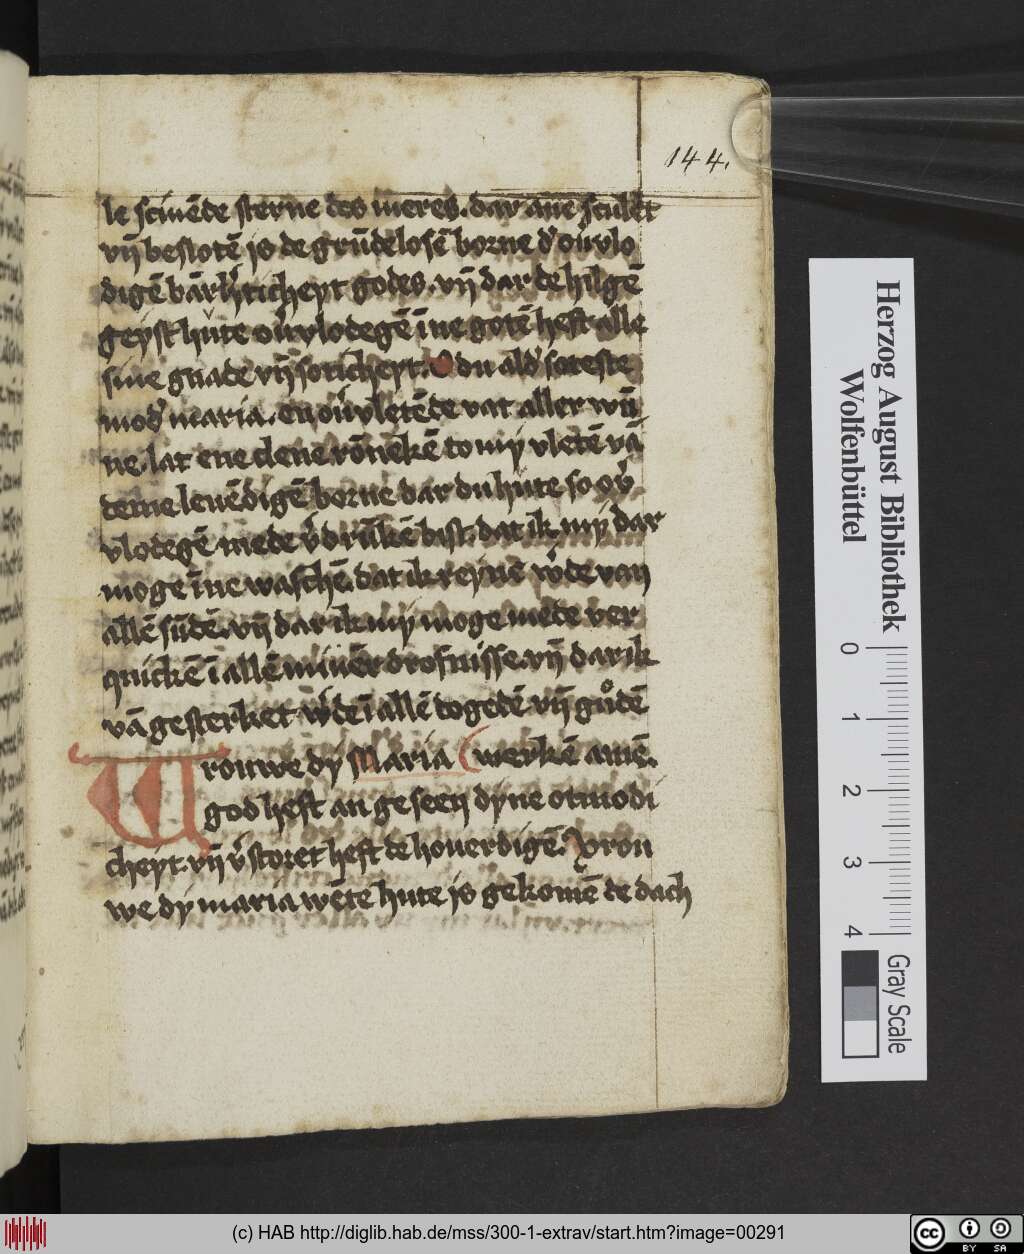 144.
le scinēde sterne des meres. dar ane sculēt
vn̄ beslotē is de grūdelosē borne d' ou'vlo
digē barḿhticheyt godes. vn̄ dar de hilgē
geyst hute ou'vlodegē īne gotē heft alle
sine gnade vn̄ soticheyt. O du ald' soteste
mod' maria. en ou'vletēde vat aller wū
ne. lat ene clene rōnekē to my vletē vā
deme leuēdigē borne dar du hute so ou'
vlodegē mede v'drūkē bist. dat ik my dar
moge īne waschē. dat ik reyne w'de van
allē sūdē. vn̄ dar ik my moge mede ver
quickē ī allē miner drofnisse. vn̄ dar ik
vā gesterket w'de ī allē dogedē vn̄ gudē
Vrouwe dy Maria ( werkē amē.
god heft an geseen dyne otmodi
cheyt. vn̄ v'storet heft de houerdigē. Vrou
we dy maria wēte hute is gekomē de dach
Herzog August Bibliothek
Wolfenbüttel
0 1 2 3 4
Gray Scale
(c) HAB http://diglib.hab.de/mss/300-1-extrav/start.htm?image=00291
cc BY SA